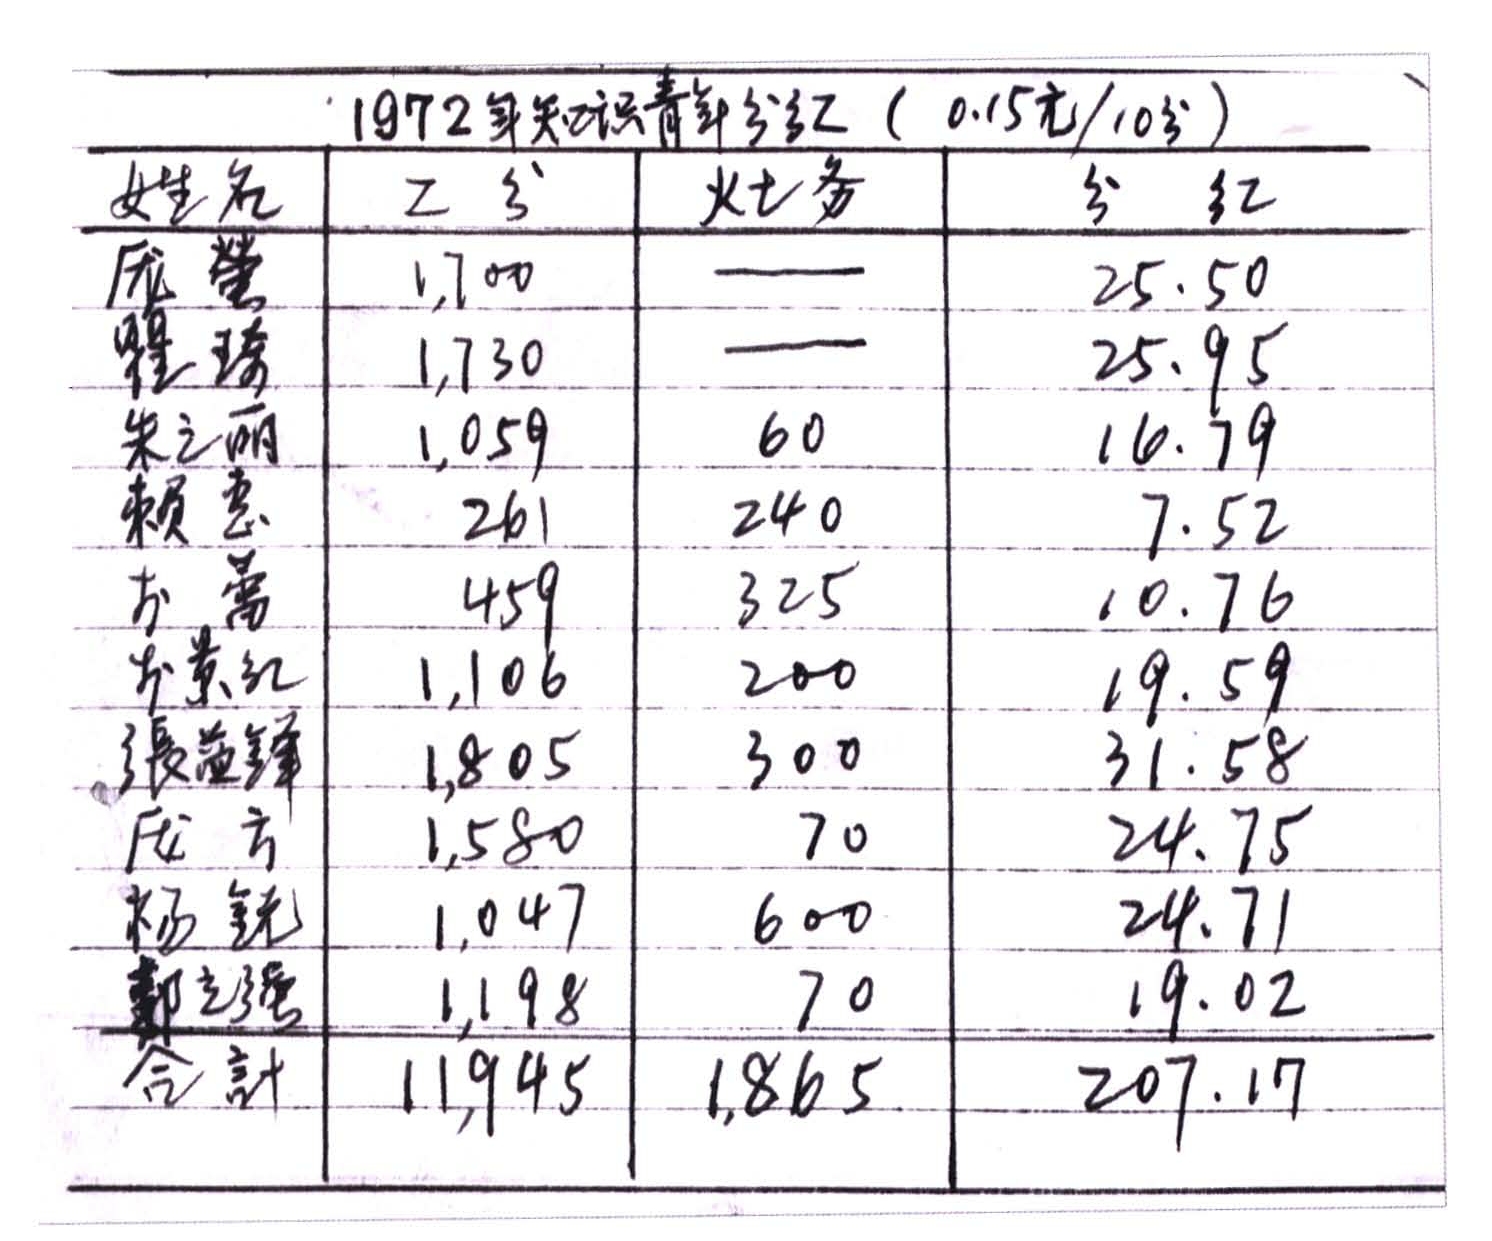 1972年知识青年分红（0.15元/10分）
姓名 工分 灶务 分红
庞莹 1,700 — 25.50
瞿琦 1,730 — 25.95
朱之丽 1,059 60 16.79
賴惠 261 240 7.52
459 325 10.76
景红 1,106 200 19.59
張益鋒 1,805 300 31.58
方 1,580 70 24.75
杨銑 1,047 600 24.71
鄭之强 1,198 70 19.02
合計 11,945 1,865 207.17